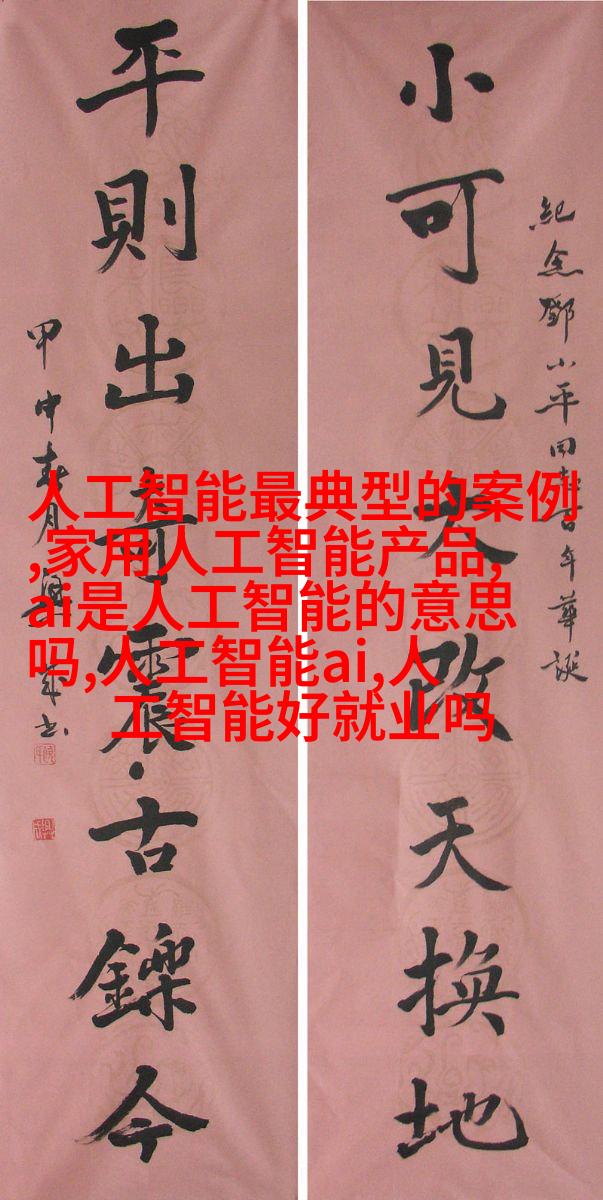 人工智能最典型的案例
,家用人工智能产品,
ai是人工智能的意思
吗,人工智能ai,人
工智能好就业吗
紀念鄧小平同志百年華誕
小可見大改天換地
平則出奇震古鑠今
甲申春月书